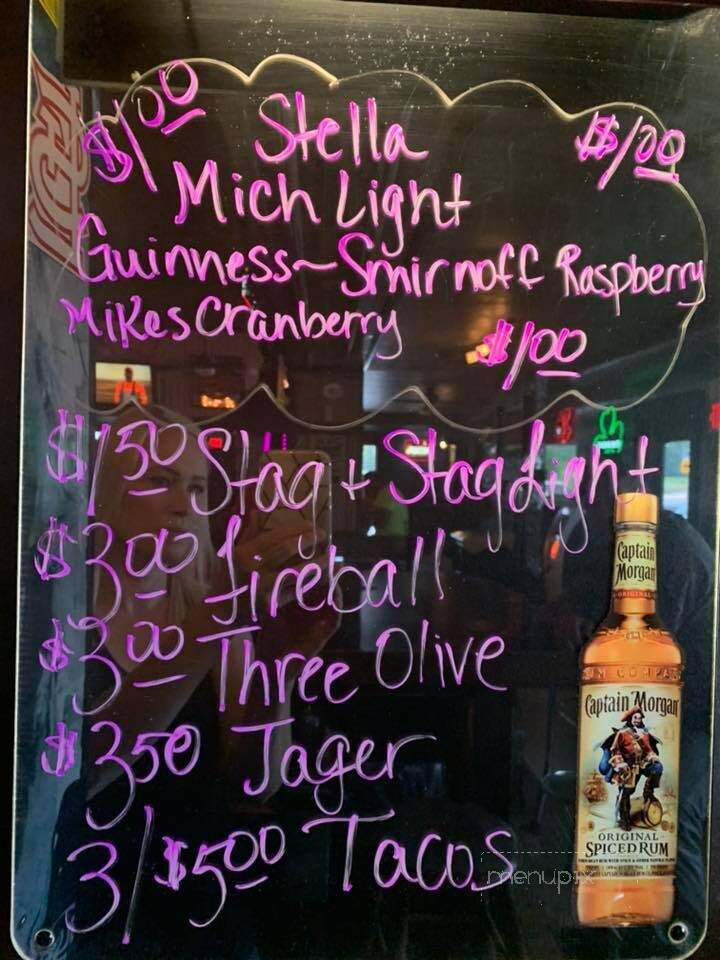 $1.00 Stella $1.00
Mich Light
Guinness~Smirnoff Raspberry
Mikes Cranberry
$1.00
$1.50 Stag + Stag Light
$3.00 Fireball
$3.00 Three Olive
$3.50 Jager
3/$5.00 Tacos
Captain
Morgan
ORIGINAL
Captain Morgan
ORIGINAL
SPICED RUM
menupix